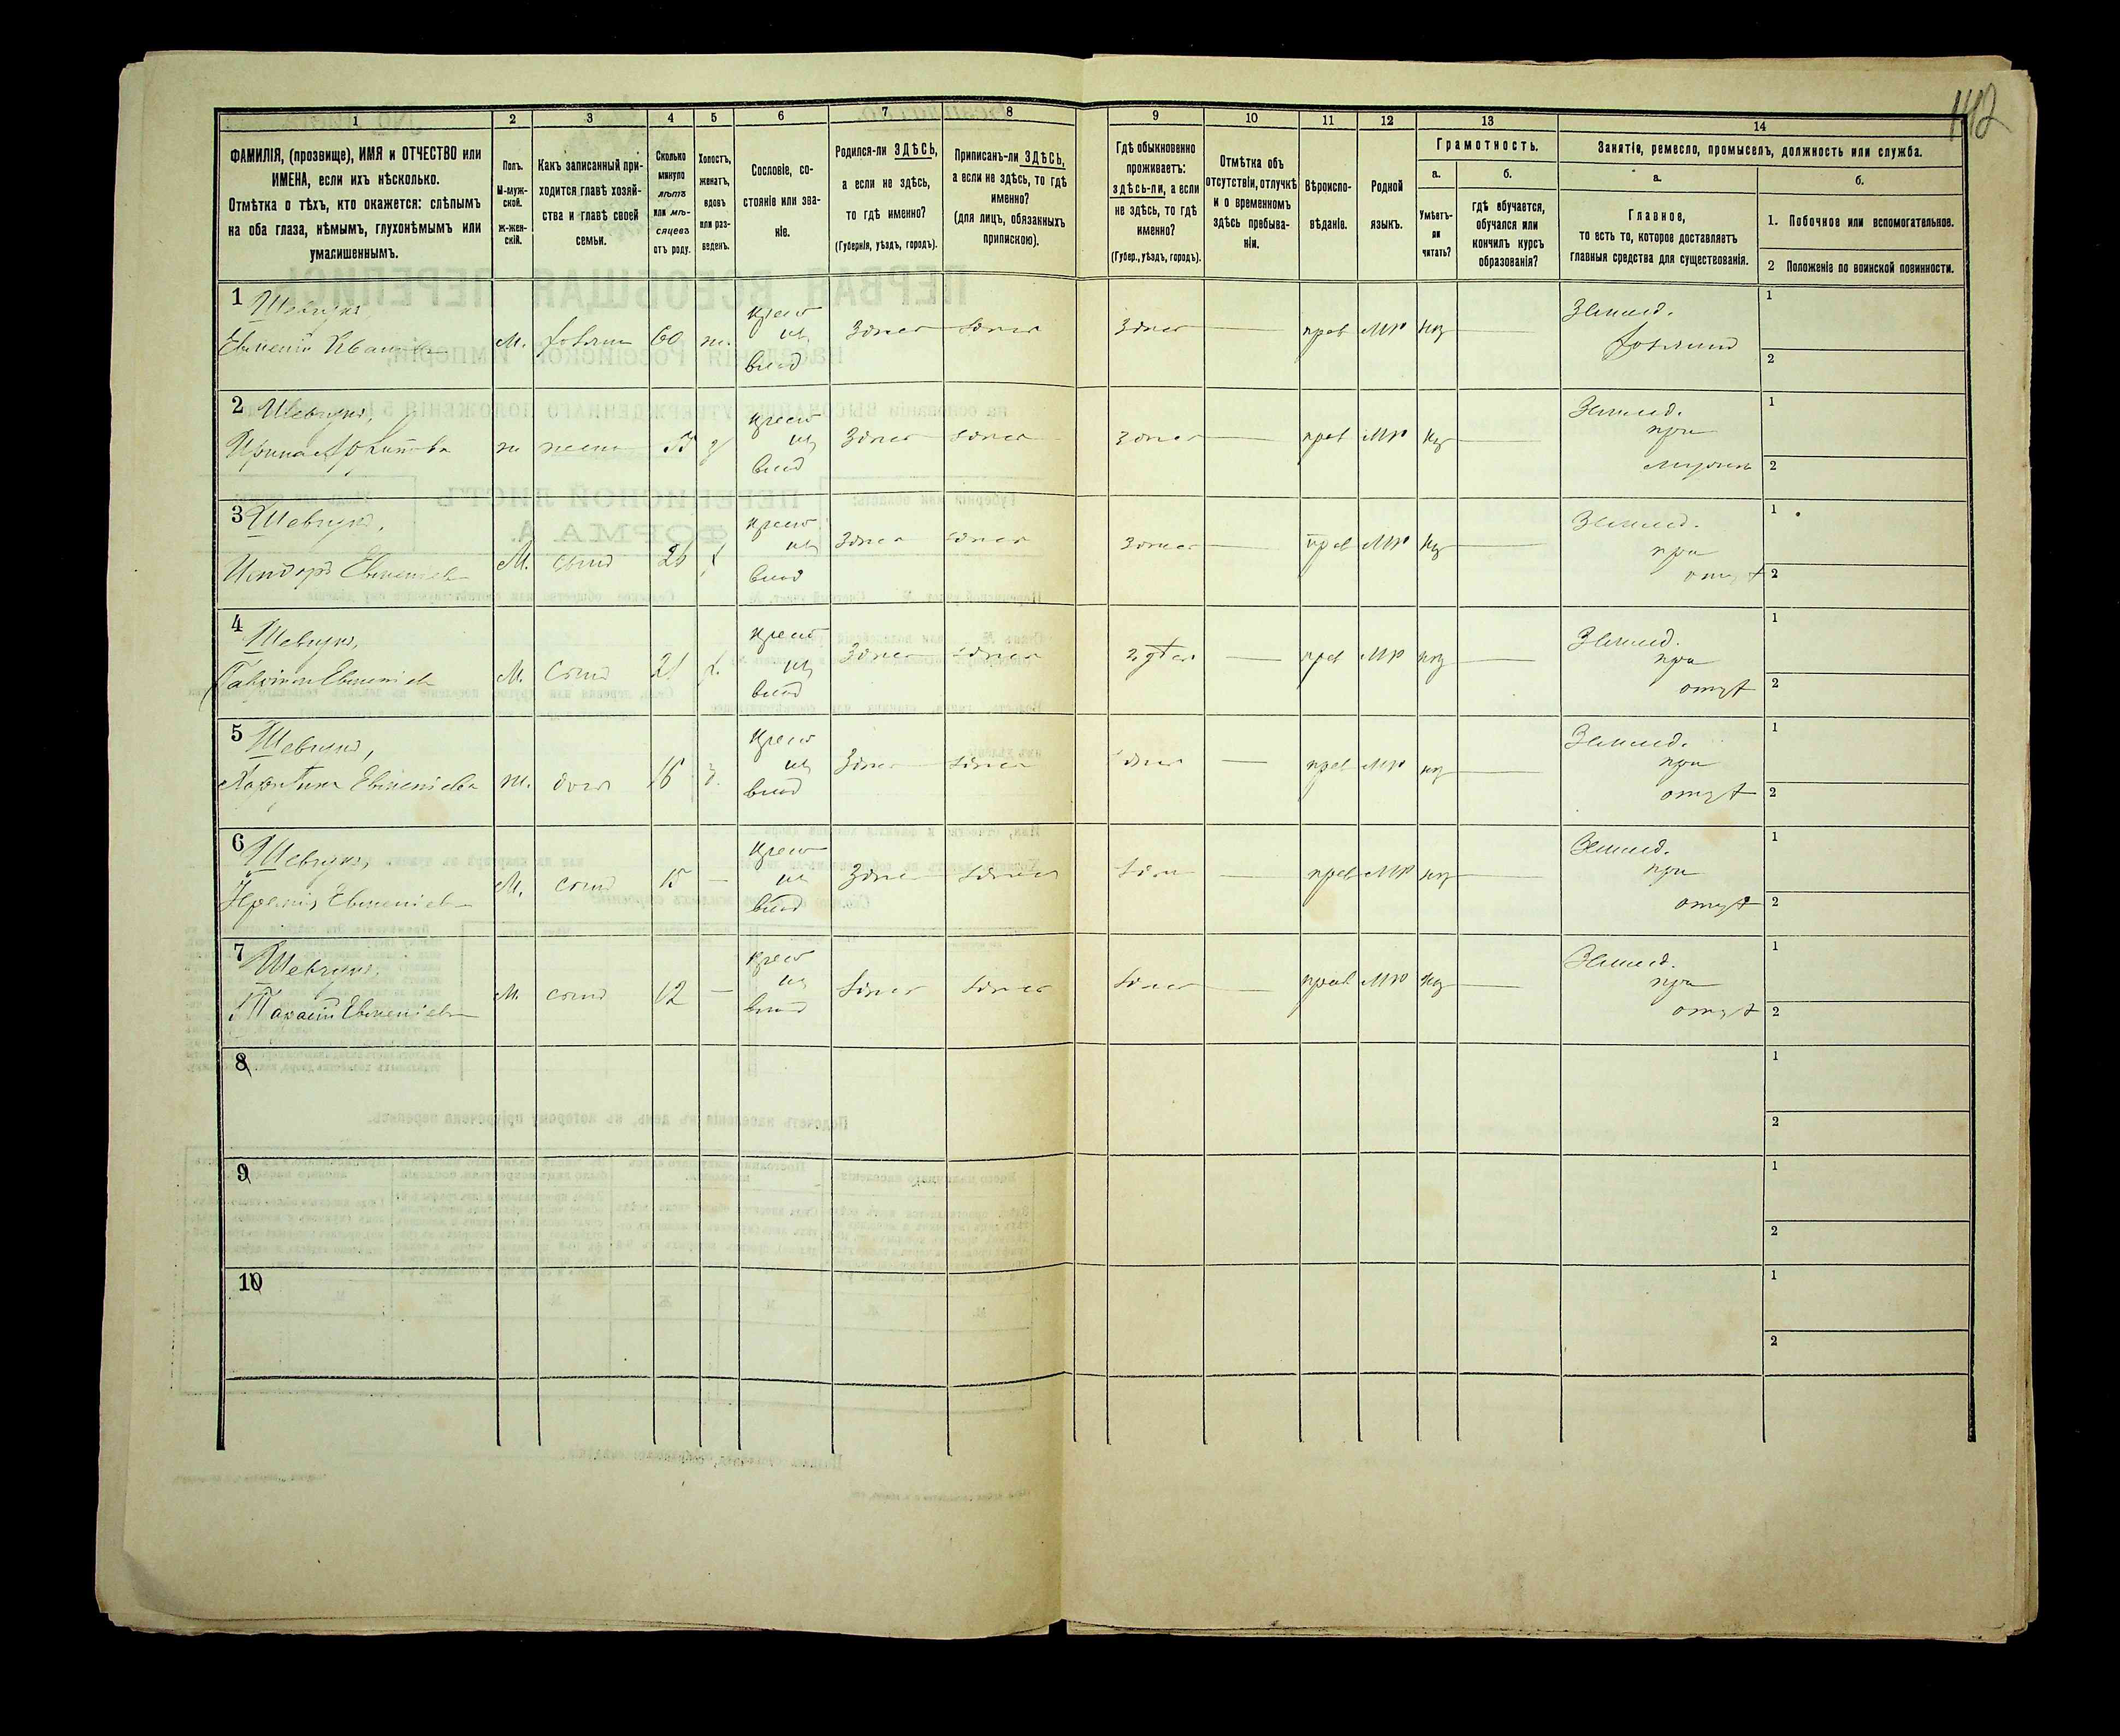 142
1 2 3 4 5 6 7 8 9 10 11 12 13 14
ФАМИЛІЯ, (прозвище), ИМЯ и ОТЧЕСТВО или
ИМЕНА, если ихъ нѣсколько.
Отмѣтка о тѣхъ, кто окажется: слѣпымъ
на оба глаза, нѣмымъ, глухонѣмымъ или
умалишеннымъ.
Полъ.
М-муж-
ской.
Ж-жен-
скій.
Какъ записанный при-
ходится главѣ хозяй-
ства и главѣ своей
семьи.
Сколько
минуло
лѣтъ
или мѣ-
сяцевъ
отъ роду.
Холостъ,
женатъ,
вдовъ
или раз-
веденъ.
Сословіе, со-
стояніе или зва-
ніе.
Родился-ли ЗДѢСЬ,
а если не здѣсь,
то гдѣ именно?
(Губернія, уѣздъ, городъ).
Приписанъ-ли ЗДѢСЬ,
а если не здѣсь, то гдѣ
именно?
(для лицъ, обязанныхъ
припискою).
Гдѣ обыкновенно
проживаетъ:
здѣсь-ли, а если
не здѣсь, то гдѣ
именно?
(Губер., уѣздъ, городъ).
Отмѣтка объ
отсутствіи, отлучкѣ
и о временномъ
здѣсь пребыва-
ніи.
Вѣроиспо-
вѣданіе.
Родной
языкъ.
Грамотность.
а.
Умѣетъ-
ли
читать?
б.
гдѣ обучается,
обучался или
кончилъ курсъ
образованія?
Занятіе, ремесло, промыселъ, должность или служба.
а.
Главное,
то есть то, которое доставляетъ
главныя средства для существованія.
б.
1. Побочное или вспомогательное.
2 Положеніе по воинской повинности.
1
Шевчукъ
Евменій Иванов
М. 60 ж.
крест
из
влад
здѣсь здѣсь здѣсь прав МР
Землед.
1
2
2 Шевчукъ,
Ирина
ж жена 55 з
крест
из
влад
здѣсь здѣсь здѣсь прав МР
Землед.
при
мужѣ
1
2
3 Шевчукъ,
Исидоръ Евменіев
М. сынъ 26 х
крест
из
влад
здѣсь здѣсь здѣсь прав МР
Землед.
при
отцѣ
1
2
4
Шевчукъ,
Евменіев
М. сынъ 21 х.
крест
из
влад
здѣсь здѣсь здѣсь прав МР
Землед.
при
отцѣ
1
2
5 Шевчукъ,
Харитина Евменіева
ж. доч 16
крест
из
влад
здѣсь здѣсь здѣсь прав МР
Землед.
при
отцѣ
1
2
6
Шевчукъ,
Евменіев
М. сынъ 15 —
крест
из
влад
здѣсь здѣсь здѣсь прав МР
Землед.
при
отцѣ
1
2
7
Шевчукъ,
Евменіев
М. сынъ 12 —
крест
из
влад
здѣсь здѣсь здѣсь прав МР
Землед.
при
отцѣ
1
2
8
1
2
9
1
2
10
1
2